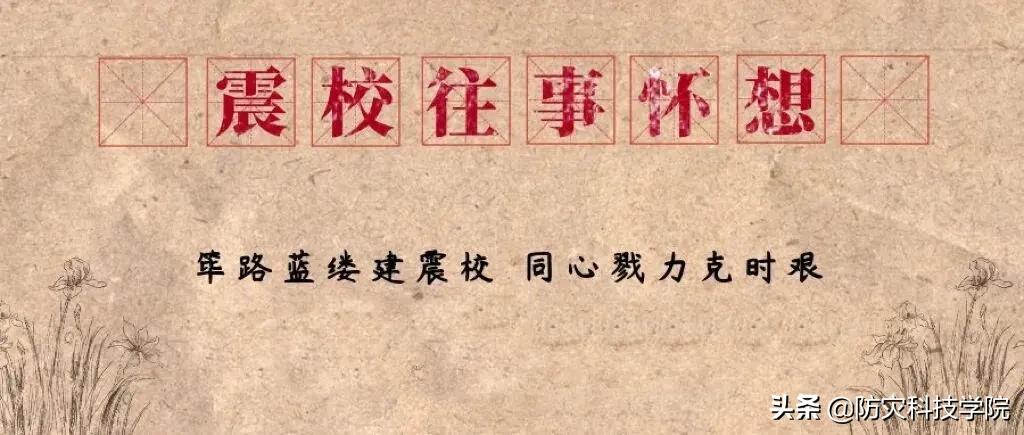 震校往事怀想
筚路蓝缕建震校 同心戮力克时艰
头条 @防灾科技学院